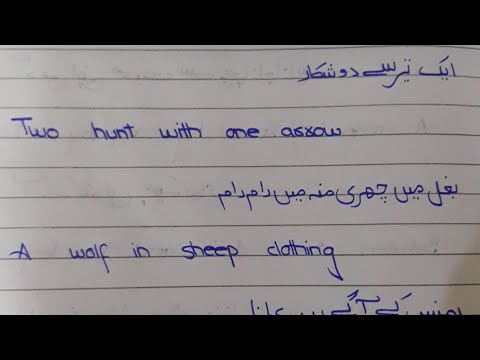 ایک تیر سے دو شکار
Two hunt with one arrow
بغل میں چھری منہ میں رام رام
A wolf in sheep clothing
کے آگے